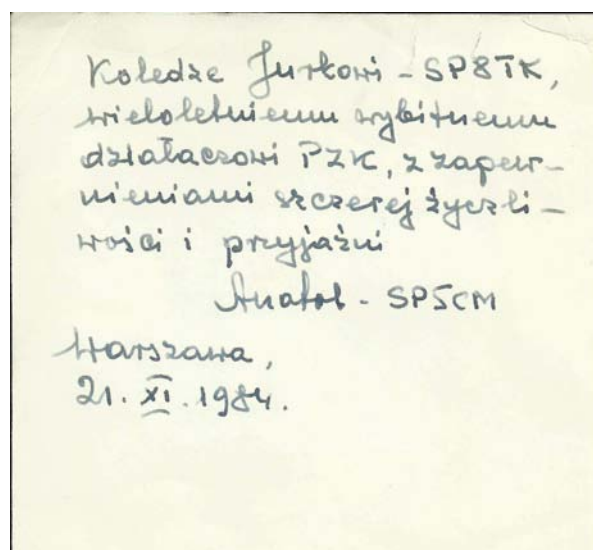 Koledze Jurkowi - SP8TK,
wieloletniemu wybitnemu
działaczowi PZK, z zapew-
nieniami szczerej życzli-
wości i przyjaźni
Anatol - SP5CM
Warszawa,
21. XI. 1984.